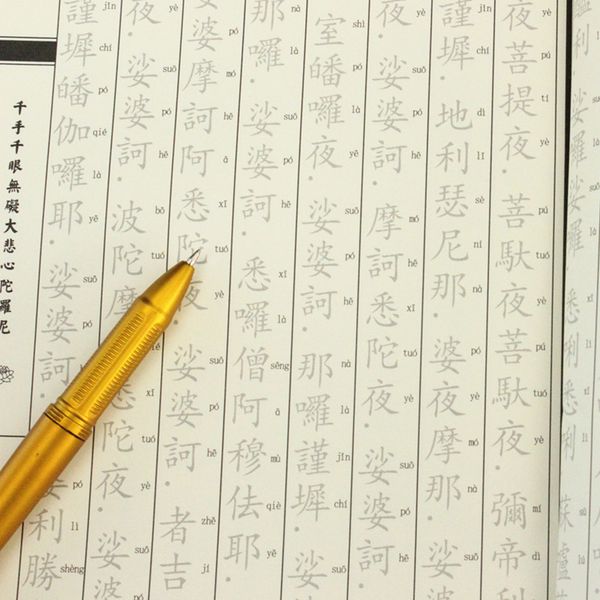 利．娑羅娑羅．悉唎悉唎．蘇嚧
夜菩提夜．菩馱夜菩馱夜．彌帝
yè pú tí yè pú tuó yè pú tuó yè mí dì
謹墀．地利瑟尼那．婆夜摩那．娑
jǐn chí dì lī sè ní nà pó yè mó nà suō
夜．娑婆訶．摩訶悉陀夜．娑婆訶
yè suō pó hē mó hē xī tuó yè suō pó hē
室皤囉夜．娑婆訶．那囉謹墀．娑
shì pó là yè suō pó hē nà là jǐn chí suō
那囉．娑婆訶．悉囉僧阿穆佉耶．
là suō pó hē xī là sēng à mù qiè yē
婆摩訶阿悉陀夜．娑婆訶．者吉
pó mó hē à xī tuó yè suō pó hē zhě jí
夜．娑婆訶．波陀摩悉陀夜．娑婆
yè suō pó hē bō tuó xī tuó yè suō
墀皤伽囉耶．娑婆訶．利勝
jǐn chí pó qié là yē suō pó lì shèng
千手千眼無礙大悲心陀羅尼